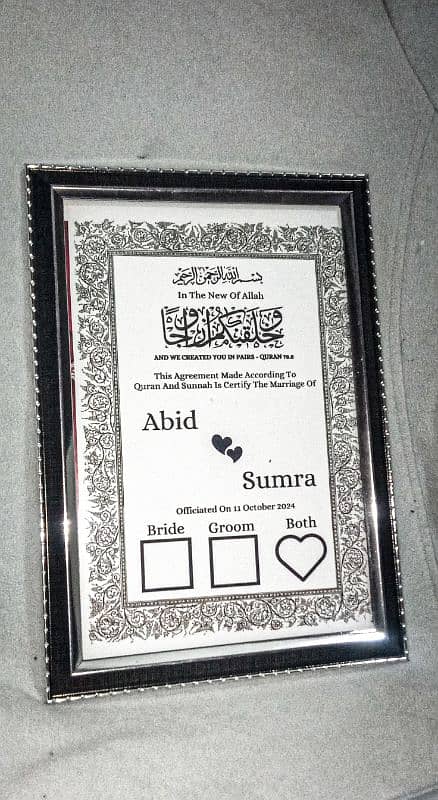 بسم الله الرحمن الرحيم
In The New Of Allah
وخلقنكم ازواجا
AND WE CREATED YOU IN PAIRS - QURAN 78.8
This Agreement Made According To
Quran And Sunnah Is Certify The Marriage Of
Abid
Sumra
Officiated On 11 October 2024
Bride Groom Both